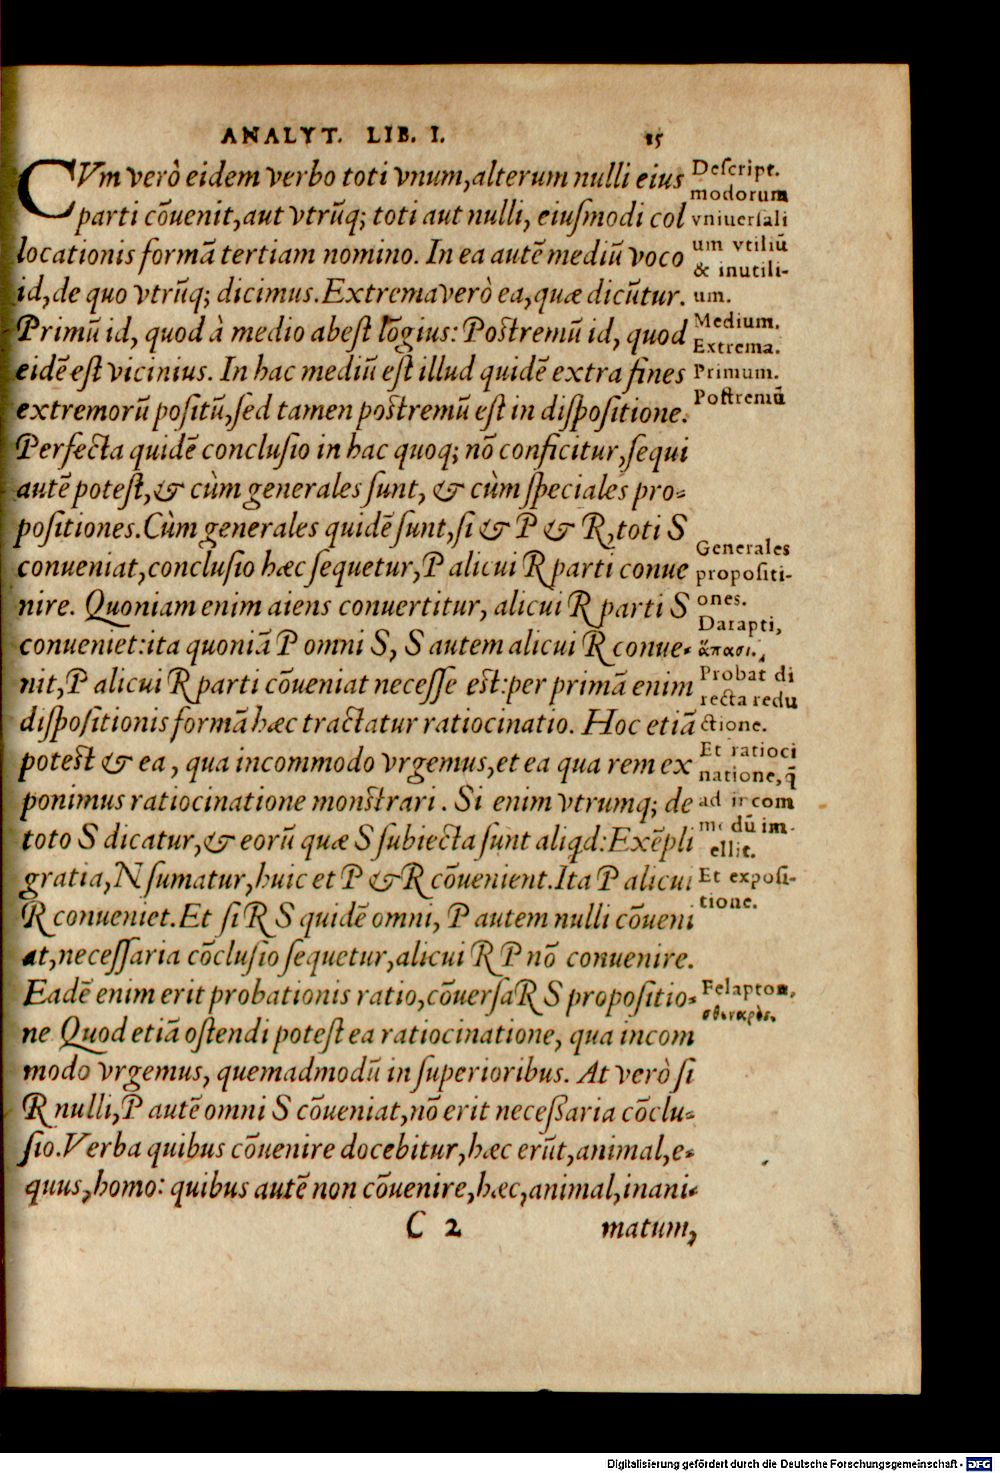 ANALYT. LIB. I. 15
CVm verò eidem verbo toti vnum, alterum nulli eius
parti cōuenit, aut vtrūq; toti aut nulli, eiusmodi col
locationis formā tertiam nomino. In ea autē mediū voco
id, de quo vtrūq; dicimus. Extrema verò ea, quæ dicūtur.
Primū id, quod à medio abest lōgius: Postremū id, quod
eidē est vicinius. In hac mediū est illud quidē extra fines
extremorū positū, sed tamen postremū est in dispositione.
Perfecta quidē conclusio in hac quoq; nō conficitur, sequi
autē potest, & cùm generales sunt, & cùm speciales pro-
positiones. Cùm generales quidē sunt, si & P & R, toti S
conueniat, conclusio hæc sequetur, P alicui R parti conue
nire. Quoniam enim aiens conuertitur, alicui R parti S
conueniet: ita quoniā P omni S, S autem alicui R conue-
nit, P alicui R parti cōueniat necesse est: per primā enim
dispositionis formā hæc tractatur ratiocinatio. Hoc etiā
potest & ea, qua incommodo vrgemus, et ea qua rem ex
ponimus ratiocinatione monstrari. Si enim vtrumq; de
toto S dicatur, & eorū quæ S subiecta sunt aliqd: Exēpli
gratia, N sumatur, huic et P & R cōuenient. Ita P alicui
R conueniet. Et si R S quidē omni, P autem nulli cōueni
at, necessaria cōclusio sequetur, alicui R P nō conuenire.
Eadē enim erit probationis ratio, cōuersa R S propositio-
ne Quod etiā ostendi potest ea ratiocinatione, qua incom
modo vrgemus, quemadmodū in superioribus. At verò si
R nulli, P autē omni S cōueniat, nō erit necessaria cōclu-
sio. Verba quibus cōuenire docebitur, hæc erūt, animal, e-
quus, homo: quibus autē non cōuenire, hæc, animal, inani-
C 2 matum,
Descript.
modorum
vniuersali
um vtiliū
& inutili-
um.
Medium.
Extrema.
Primum.
Postremū
Generales
propositi-
ones.
Darapti,
ἅπασι.
Probat di
recta redu
ctione.
Et ratioci
natione, q̄
ad incom
modū im-
ellit.
Et exposi-
tione.
Felapton,
Digitalisierung gefördert durch die Deutsche Forschungsgemeinschaft - DFG